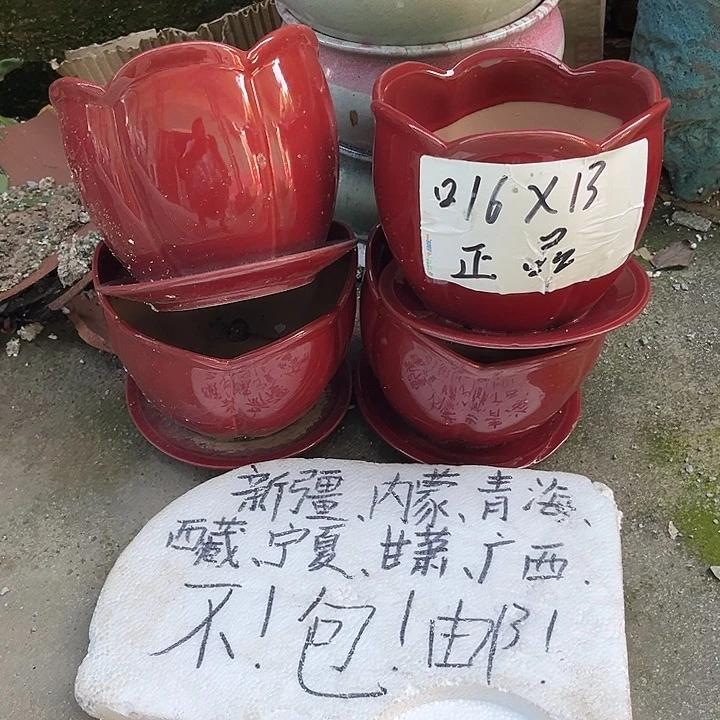 口16X13
正品
新疆、内蒙、青海、
西藏、宁夏、甘萧、广西.
不！包！邮！